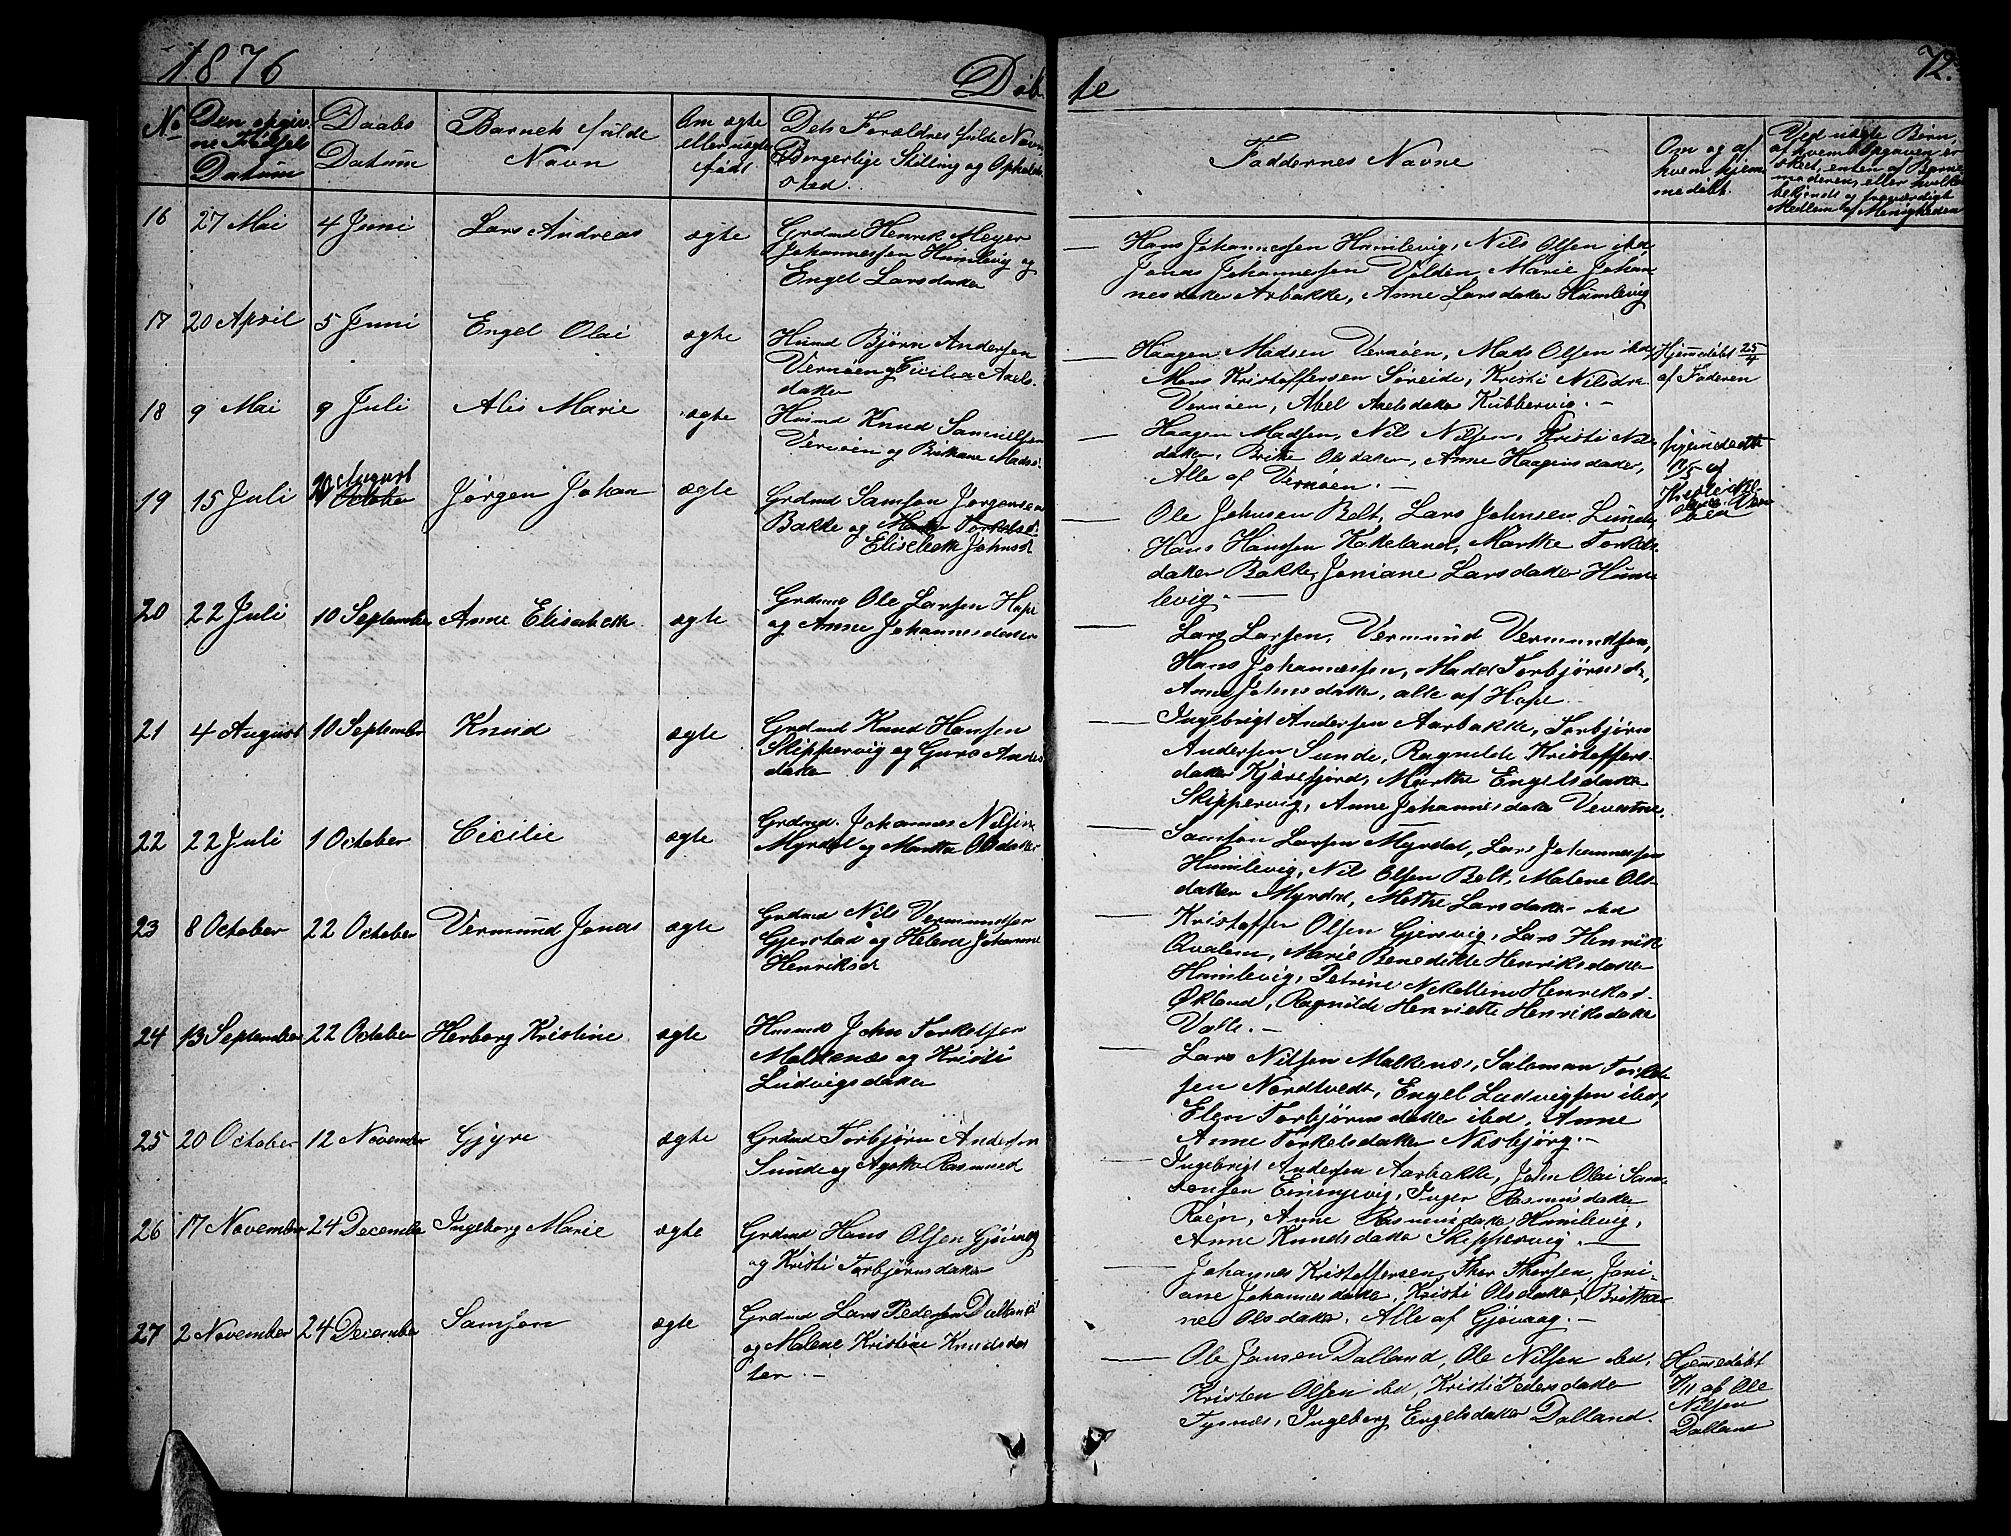 1876
Døbte
72.
No
Den opgivne Fødsels Datum
Daabs Datum
Barnets fulde Navn
Om ægte eller uægte født
Dets Forældres fulde Navn Borgerlige Stilling og Opholdssted.
Faddernes Navne
Om og af hvem hjemmedøbt.
Ved uægte Børn, af hvem Opgaven er skeet, enten af Barnemoderen, eller hvilke bekjendt og troværdigt Medlem af Menigheden
16
27 Mai
4 Juni
Lars Andreas
ægte
Grdmd Henrik Meyer
Johannessen Humlevig og
Engel Larsdatter
Hans Johannessen Humlevig, Nils Olsen ibd,
Jonas Johannessen Volden, Marie Johan
nesdatter Arbakke, Anne Larsdatter Humlevig
17
20 April
5 Juni
Engel Olai
ægte
Husmd Bjørn Andersen
Vernøen og Cicilia Axels
datter
Haagen Madsen Vernøen, Mads Olsen ibd,
Mons Kristoffersen Søreide, Kristi Nilsdr
Vernøen, Abel Axelsdatter Kubbervig. -
Hjemmedøbt 25/4
af Faderen
18
9 Mai
9 Juli
Alis Marie
ægte
Husmd Knud Samuelsen
Vernøen og Brithane Madsd.
Haagen Madsen, Nils Nilsen, Kristi Nils
datter, Brite Olsdatter, Anne Haagensdatter,
Alle af Vernøen. -
hjemmedøbt
af
19
15 Juli
20 August
October
Jørgen Johan
ægte
Grdmd Samson Jørgensen
Bakke og
Elisebeth Johnsd.
Ole Johnsen Belt, Lars Johnsen Lunde,
Hans Hansen Kakeland, Marthe Torkels
datter Bakke, Joniane Larsdatter Hum
levig. -
20
22 Juli
10 September
Anne Elisabeth
ægte
Grdmd Ole Larsen Hope
og Anne Johannesdatter
Lars Larsen, Vermund Vermundsen,
Hans Johannessen, Madel Torbjørnsd.,
Anne Johnsdatter, alle af Hope.
21
4 August
10 September
Knud
ægte
Grdmd Knud Hansen
Skippervig og Guro Anders
datter
Ingebrigt Andersen Aarbakke, Torbjørn
Andersen Sunde, Ragnilde Kristoffers
datter Kjærefjord, Marthe Engelsdatter
Skippervig, Anne Johannesdatter
22
22 Juli
1 October
Cicilie
ægte
Grdmd. Johannes Nilsen
Myrdal og Martha Olsdatter
Samson Larsen Myrdal, Lars Johannessen
Humlevig, Nils Olsen Belt, Malene Ols
datter Myrdal, Methe Larsdatter ibd
23
8 October
22 October
Vermund Jonas
ægte
Grdmd Nils Vermundsen
Gjerstad og Helene Johanne
Henriksd
Kristoffer Olsen Gjersvig, Lars Henrik
Qvalem, Marie Benedikte Henriksdatter
Humlevig, Petrine Nikoline Henriksd.
Økland, Ragnilde Henriette Henriksdatter
Valle. -
24
13 September
22 October
Herborg Kristine
ægte
Husmd John Torkelsen
Malkenæs og Kristi
Ludvigsdatter
Lars Nilsen Malkenæs, Salomon Torkel
sen Nordtvedt, Engel Ludvigsen ibd,
Elen Torbjørnsdatter ibd, Anne
Anne Torkelsdatter Nesbjørg. -
25
20 October
12 November
Gjyre
ægte
Grdmd Torbjørn Andersen
Sunde og Agatha Rasmusd
Ingebrigt Andersen Aarbakke, John Olai Sam
sonsen Eningevig, Inger Rasmusdatter
Røen, Anne Rasmusdatter Humlevig,
Anne Knudsdatter Skippervig. -
26
17 November
24 December
Ingeborg Marie
ægte
Grdmd Hans Olsen Gjøvaag
og Kristi Torbjørnsdatter
Johannes Kristoffersen, Thor Thorsen, Joni
ane Johannesdatter, Kristi Olsdatter, Britha
ne Olsdatter. Alle af Gjøvaag. -
27
2 November
24 December
Samson
ægte
Grdmd Lars Pedersen Dalland
og Malene Kristine Knudsdat
ter. -
Ole Jansen Dalland, Ole Nilsen ibd,
Kristen Olsen ibd, Kristi Pedersdatter
Tysnæs, Ingeborg Engelsdatter Dalland.
Hjemmedøbt
/11 af Ole
Nilsen
Dalland